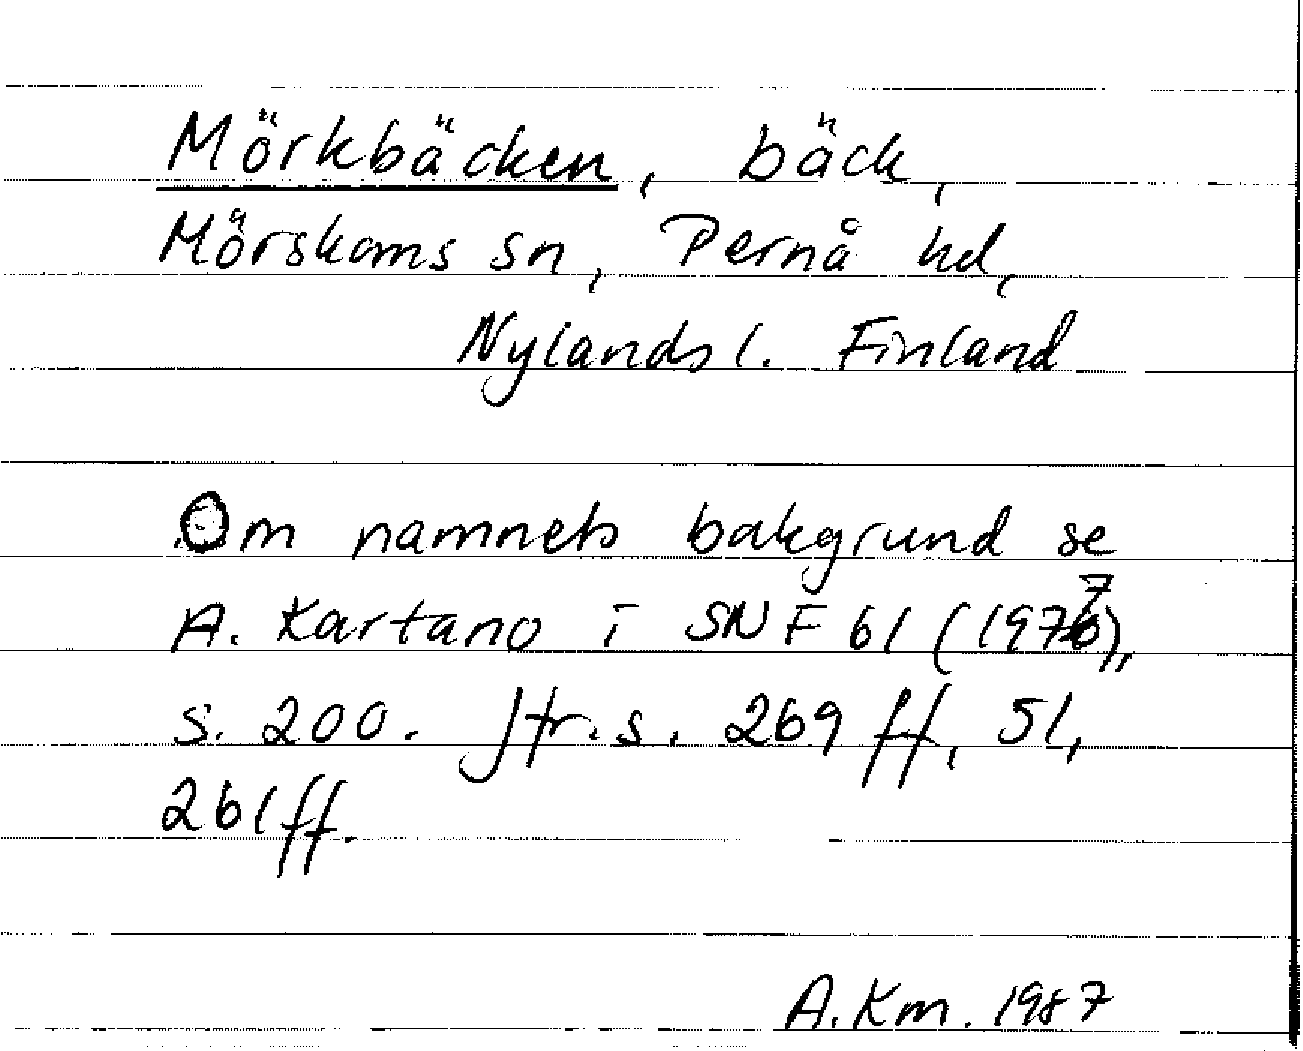 Mörkbäcken, bäck,
Mörskoms sn, Pernå hd,
Nylands l. Finland
Om namnets bakgrund se
A. Kartano i SNF 61 (1977),
s. 200. Jfr. s. 269 ff, 51,
261 ff.
A. Km. 1987